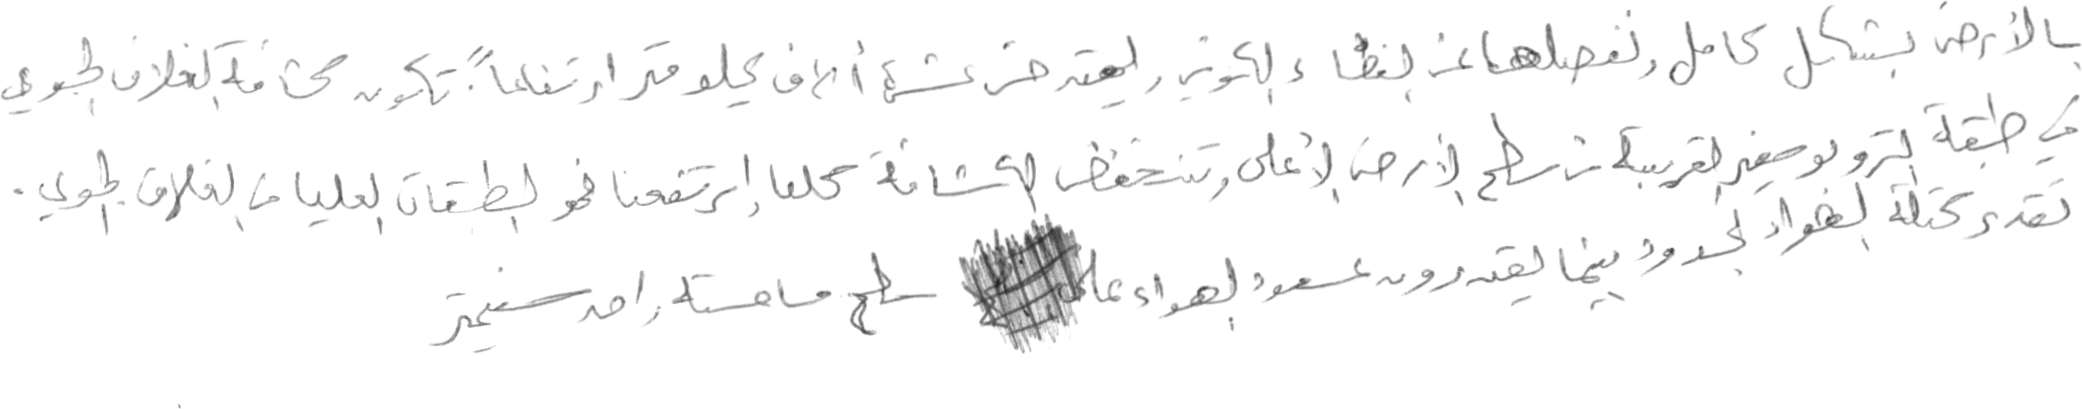 بالأرض بشكل كامل وتفصلها عن الفضاء الكوني ويمتد حتى عشرة آلاف كيلو متر ارتفاعاً. تكون كثافة الغلاف الجوي
في طبقة التروبوسفير القريبة من سطح الأرض الأعلى وتنخفض الكثافة كلما إرتفعنا نحو الطبقات العليا من الغلاف الجوي.
تقدر كتلة الهواء بحدود بينما يقدرون عمود الهواء على سطح مساحته واحد سنيمتر